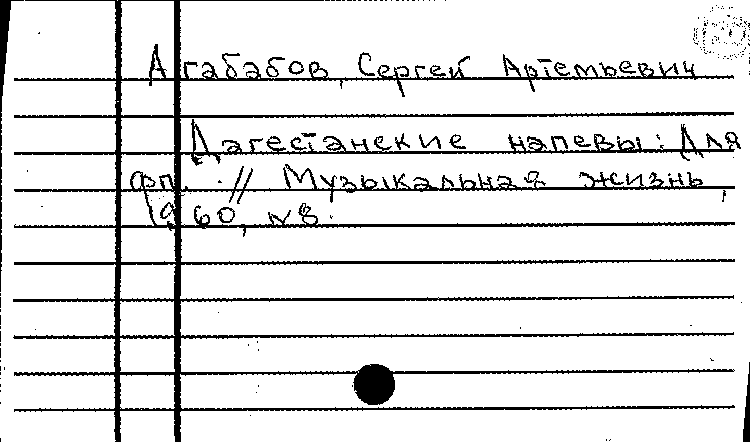 Агабабов, Сергей Артемьевич
Дагестанские напевы: Для
фп. // Музыкальная жизнь,
1960, №8.